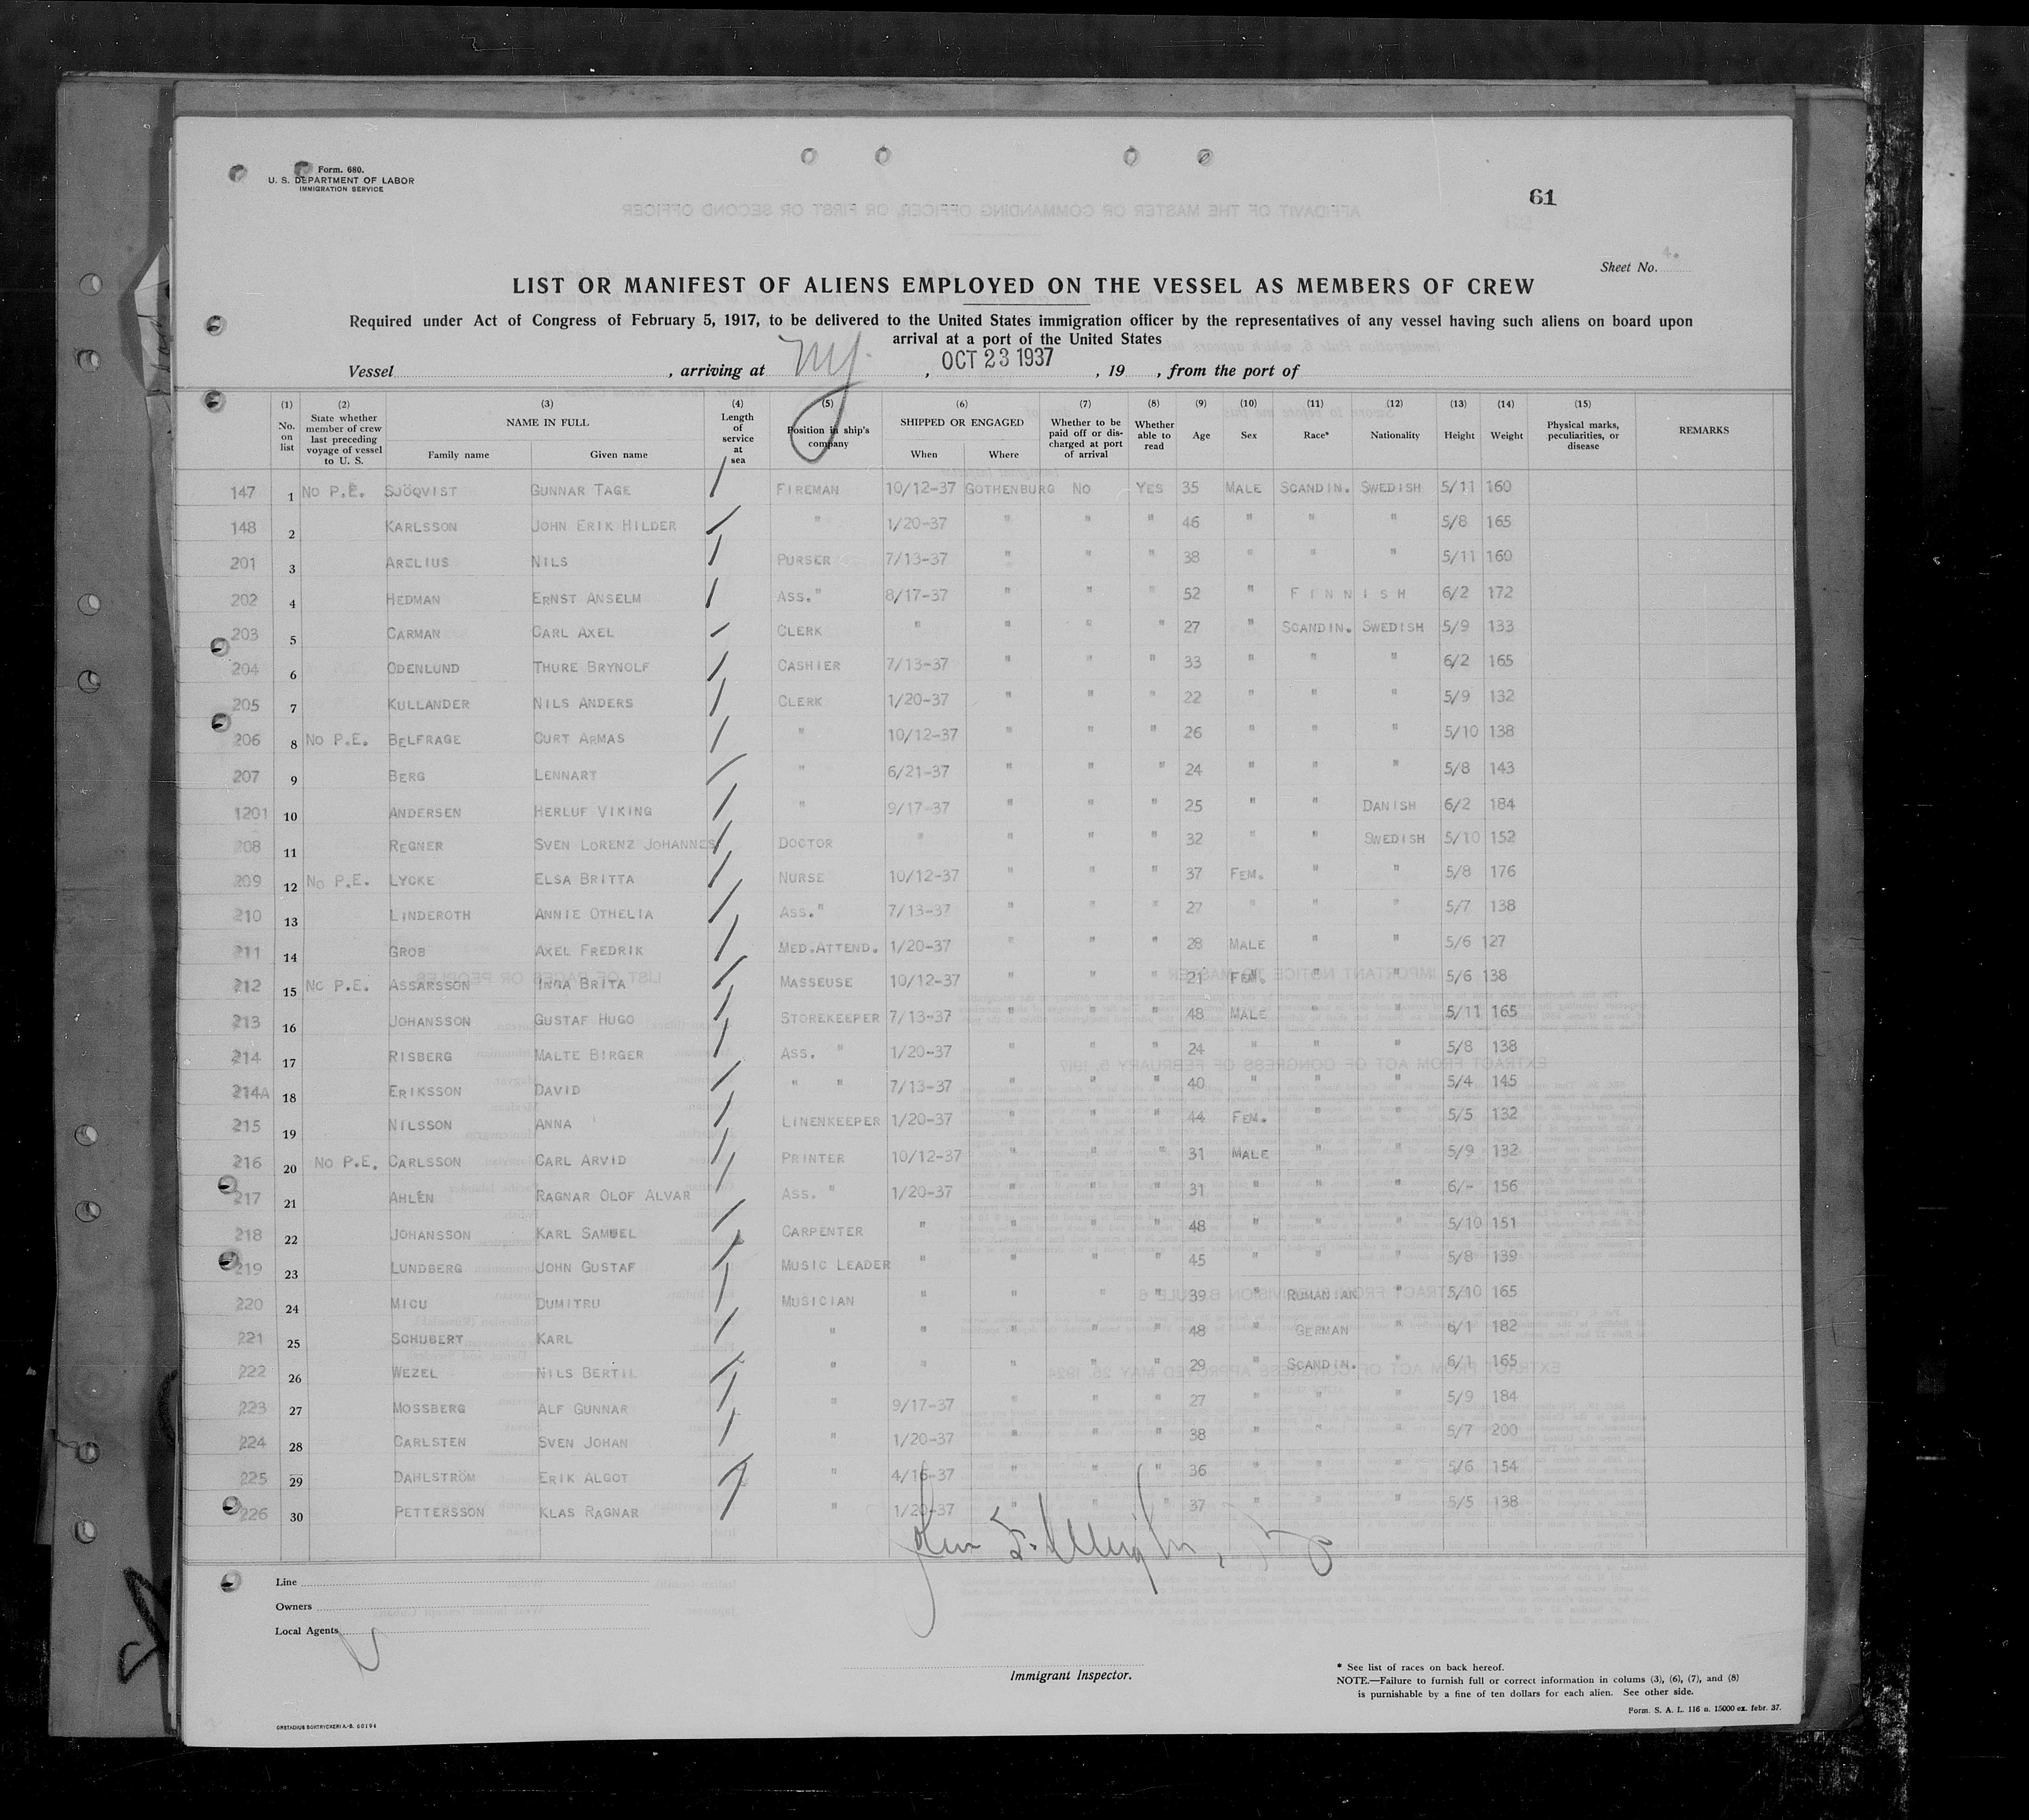 Form. 680.
U. S. DEPARTMENT OF LABOR
IMMIGRATION SERVICE
61
Sheet No. 4.
LIST OR MANIFEST OF ALIENS EMPLOYED ON THE VESSEL AS MEMBERS OF CREW
Required under Act of Congress of February 5, 1917, to be delivered to the United States immigration officer by the representatives of any vessel having such aliens on board upon
arrival at a port of the United States
Vessel , arriving at NY. , OCT 23 1937 , 19 , from the port of
(1) No. on list (2) State whether member of crew last preceding voyage of vessel to U. S. (3) NAME IN FULL Family name Given name (4) Length of service at sea (5) Position in ship's company (6) SHIPPED OR ENGAGED When Where (7) Whether to be paid off or discharged at port of arrival (8) Whether able to read (9) Age (10) Sex (11) Race* (12) Nationality (13) Height (14) Weight (15) Physical marks, peculiarities, or disease REMARKS
147 1 NO P.E. SJÖQVIST GUNNAR TAGE FIREMAN 10/12-37 GOTHENBURG NO YES 35 MALE SCANDIN. SWEDISH 5/11 160
148 2 KARLSSON JOHN ERIK HILDER " 1/20-37 " " " 46 " " " 5/8 165
201 3 ARELIUS NILS PURSER 7/13-37 " " " 38 " " " 5/11 160
202 4 HEDMAN ERNST ANSELM ASS." 8/17-37 " " " 52 " FINNISH 6/2 172
203 5 CARMAN CARL AXEL CLERK " " " " 27 " SCANDIN. SWEDISH 5/9 133
204 6 ODENLUND THURE BRYNOLF CASHIER 7/13-37 " " " 33 " " " 6/2 165
205 7 KULLANDER NILS ANDERS CLERK 1/20-37 " " " 22 " " " 5/9 132
206 8 NO P.E. BELFRAGE CURT ARMAS " 10/12-37 " " " 26 " " " 5/10 138
207 9 BERG LENNART " 6/21-37 " " " 24 " " " 5/8 143
1201 10 ANDERSEN HERLUF VIKING " 9/17-37 " " " 25 " " DANISH 6/2 184
208 11 REGNER SVEN LORENZ JOHANNES DOCTOR " " " " 32 " " SWEDISH 5/10 152
209 12 NO P.E. LYCKE ELSA BRITTA NURSE 10/12-37 " " " 37 FEM. " " 5/8 176
210 13 LINDEROTH ANNIE OTHELIA ASS." 7/13-37 " " " 27 " " " 5/7 138
211 14 GROB AXEL FREDRIK MED.ATTEND. 1/20-37 " " " 28 MALE " " 5/6 127
212 15 NO P.E. ASSARSSON INGA BRITA MASSEUSE 10/12-37 " " " 21 FEM. " " 5/6 138
213 16 JOHANSSON GUSTAF HUGO STOREKEEPER 7/13-37 " " " 48 MALE " " 5/11 165
214 17 RISBERG MALTE BIRGER ASS. " 1/20-37 " " " 24 " " " 5/8 138
214A 18 ERIKSSON DAVID " " 7/13-37 " " " 40 " " " 5/4 145
215 19 NILSSON ANNA LINENKEEPER 1/20-37 " " " 44 FEM. " " 5/5 132
216 20 NO P.E. CARLSSON CARL ARVID PRINTER 10/12-37 " " " 31 MALE " " 5/9 132
217 21 AHLÉN RAGNAR OLOF ALVAR ASS. " 1/20-37 " " " 31 " " " 6/- 156
218 22 JOHANSSON KARL SAMUEL CARPENTER " " " " 48 " " " 5/10 151
219 23 LUNDBERG JOHN GUSTAF MUSIC LEADER " " " " 45 " " " 5/8 139
220 24 MICU DUMITRU MUSICIAN " " " " 39 " RUMANIAN " 5/10 165
221 25 SCHUBERT KARL " " " " " 48 " GERMAN " 6/1 182
222 26 WEZEL NILS BERTIL " " " " " 29 " SCANDIN. " 6/1 165
223 27 MOSSBERG ALF GUNNAR " 9/17-37 " " " 27 " " " 5/9 184
224 28 CARLSTEN SVEN JOHAN " 1/20-37 " " " 38 " " " 5/7 200
225 29 DAHLSTRÖM ERIK ALGOT " 4/16-37 " " " 36 " " " 5/6 154
226 30 PETTERSSON KLAS RAGNAR " 1/20-37 " " " 37 " " " 5/5 138
Line
Owners
Local Agents
Immigrant Inspector.
* See list of races on back hereof.
NOTE.—Failure to furnish full or correct information in colums (3), (6), (7), and (8)
is purnishable by a fine of ten dollars for each alien. See other side.
Form. S. A. L. 116 n. 15000 ex. febr. 37.